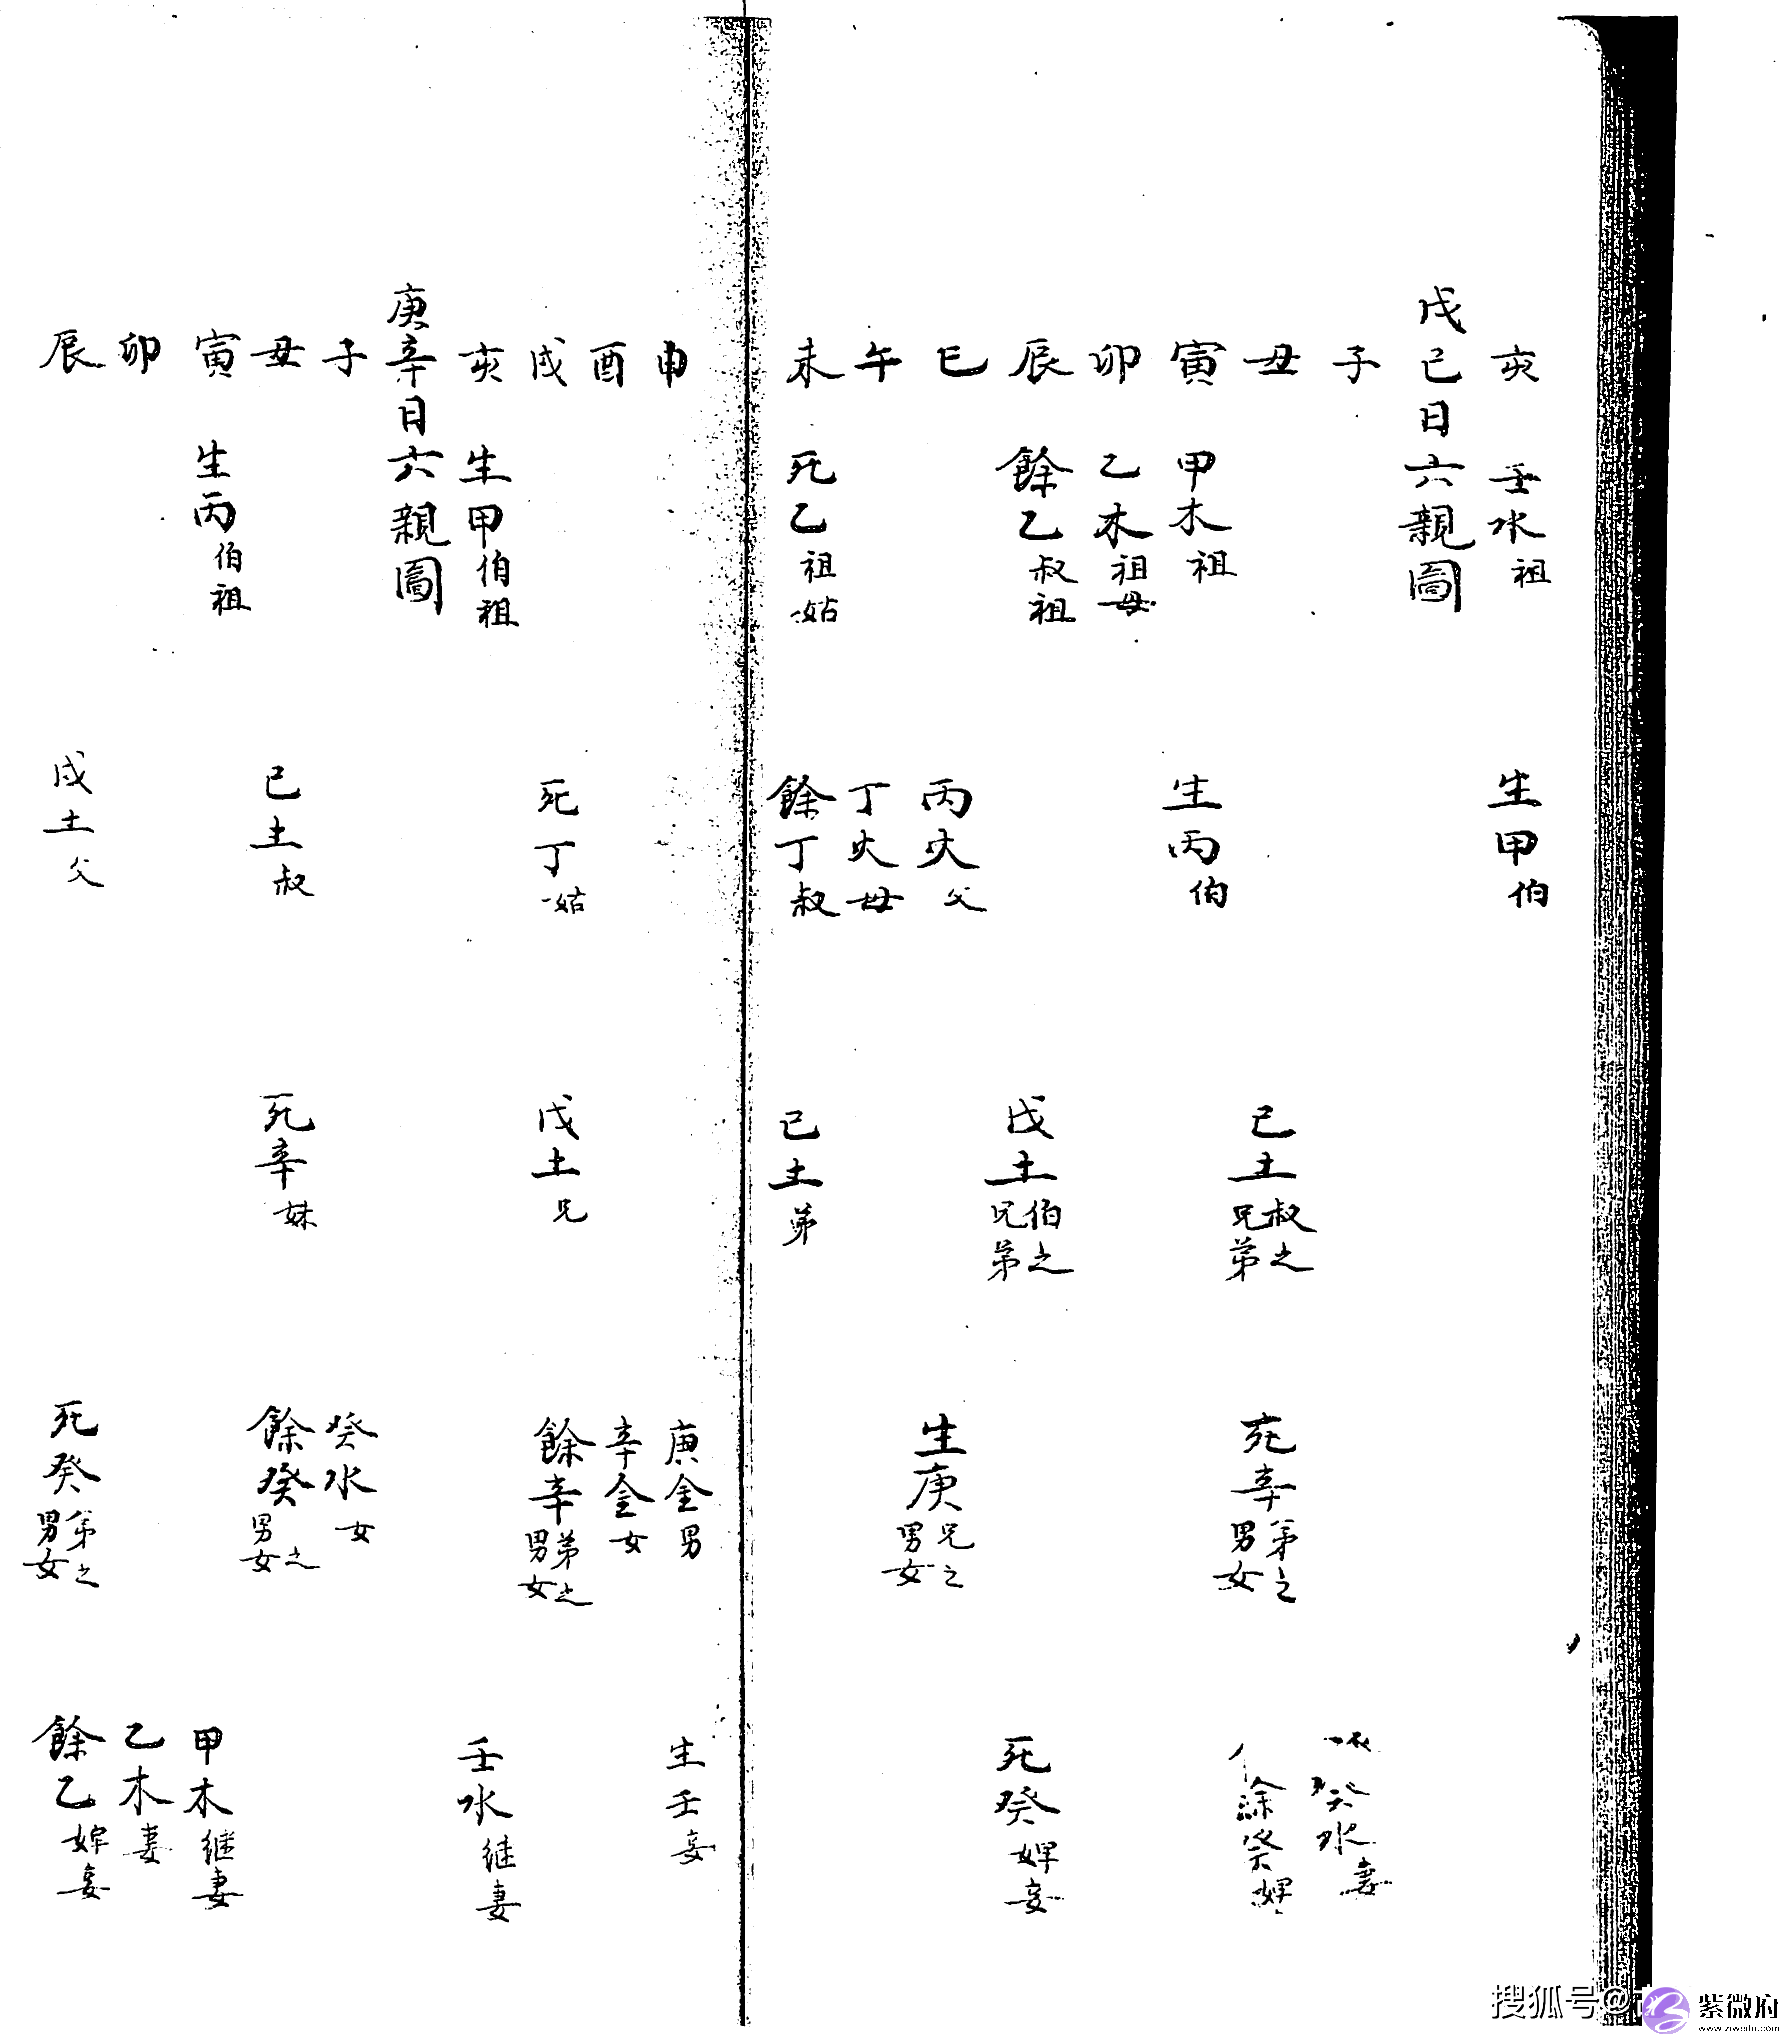 亥 壬水祖 生甲伯
戊己日六親圖
子 癸水妻
丑 己土叔之兄弟 死辛弟之男女 餘癸婢
寅 甲木祖 生丙伯
卯 乙木祖母
辰 餘乙叔祖 戊土伯之兄弟 死癸婢妾
巳 丙火父 生庚兄之男女
午 丁火母
未 死乙祖姑 餘丁叔 己土弟
申 庚金男 生壬妾
酉 辛金女
戌 死丁姑 戊土兄 餘辛弟之男女
亥 生甲伯祖 壬水继妻
庚辛日六親圖
子 癸水女
丑 己土叔 死辛妹 餘癸之男女
寅 生丙伯祖 甲木继妻
卯 乙木妻
辰 戊土父 死癸弟之男女 餘乙婢妾
搜狐号@
紫微府
www.ziweifu.com